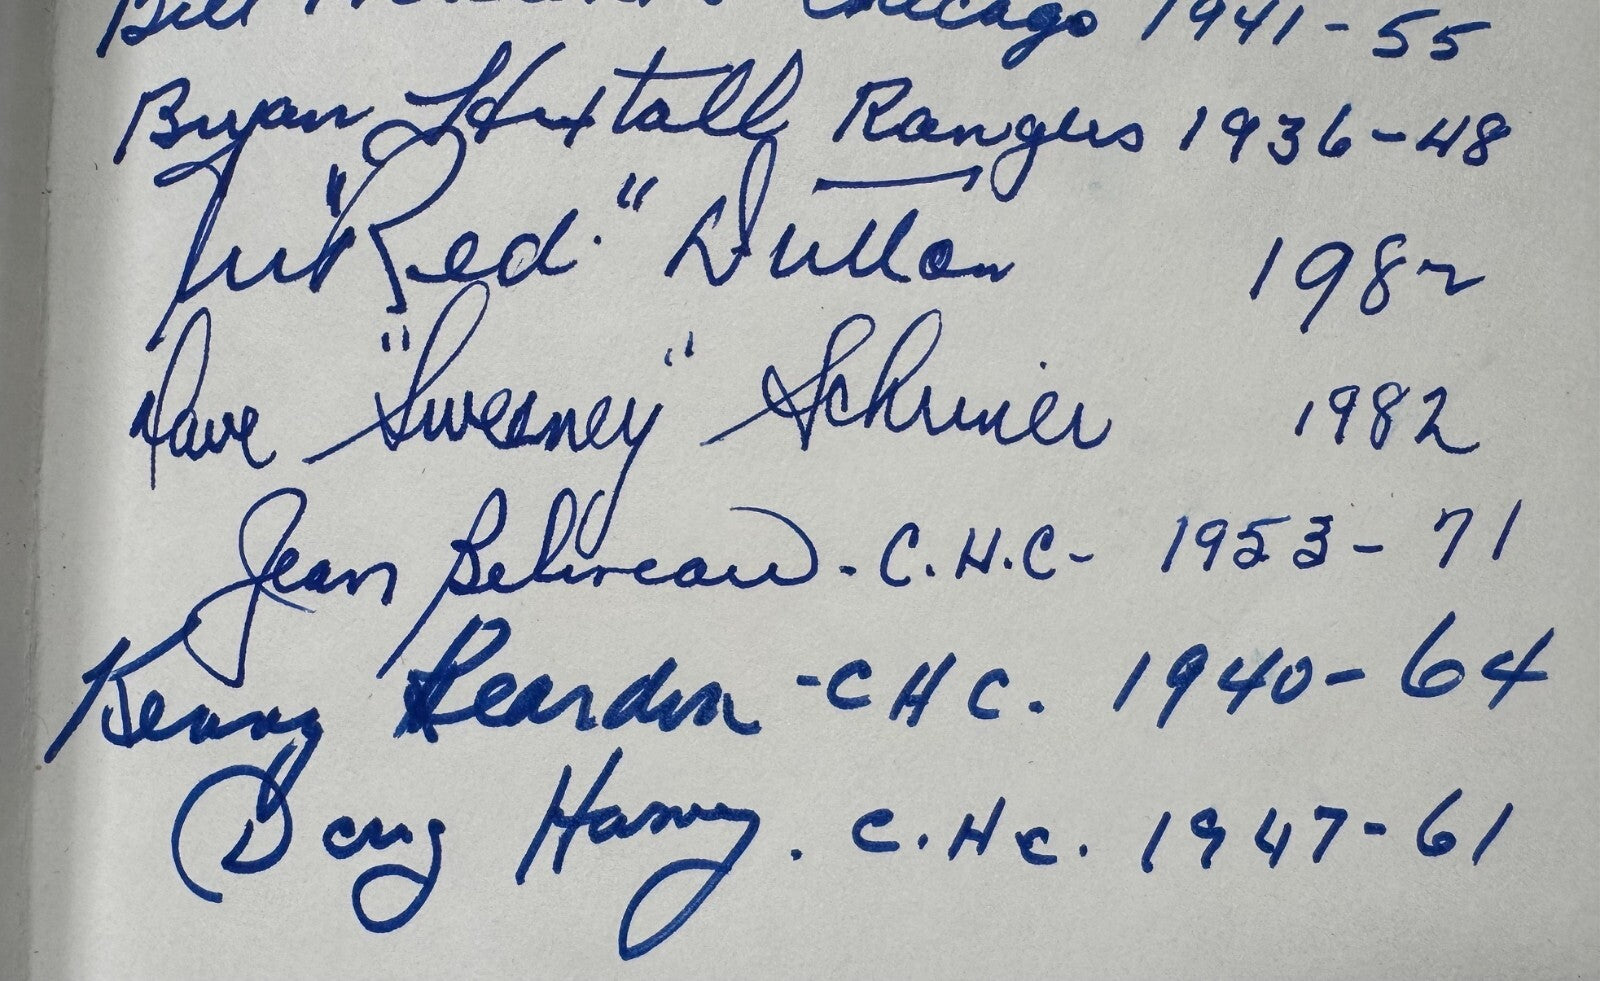 Bill Chicago 1941-55
Bryan Hextall Rangers 1936-48
"Red" Dutton 1982
Dave "Sweeney" Schriner 1982
Jean Beliveau - C.H.C - 1953-71
Kenny Reardon - C H C. 1940-64
Doug Harvey. C.H.C. 1947-61